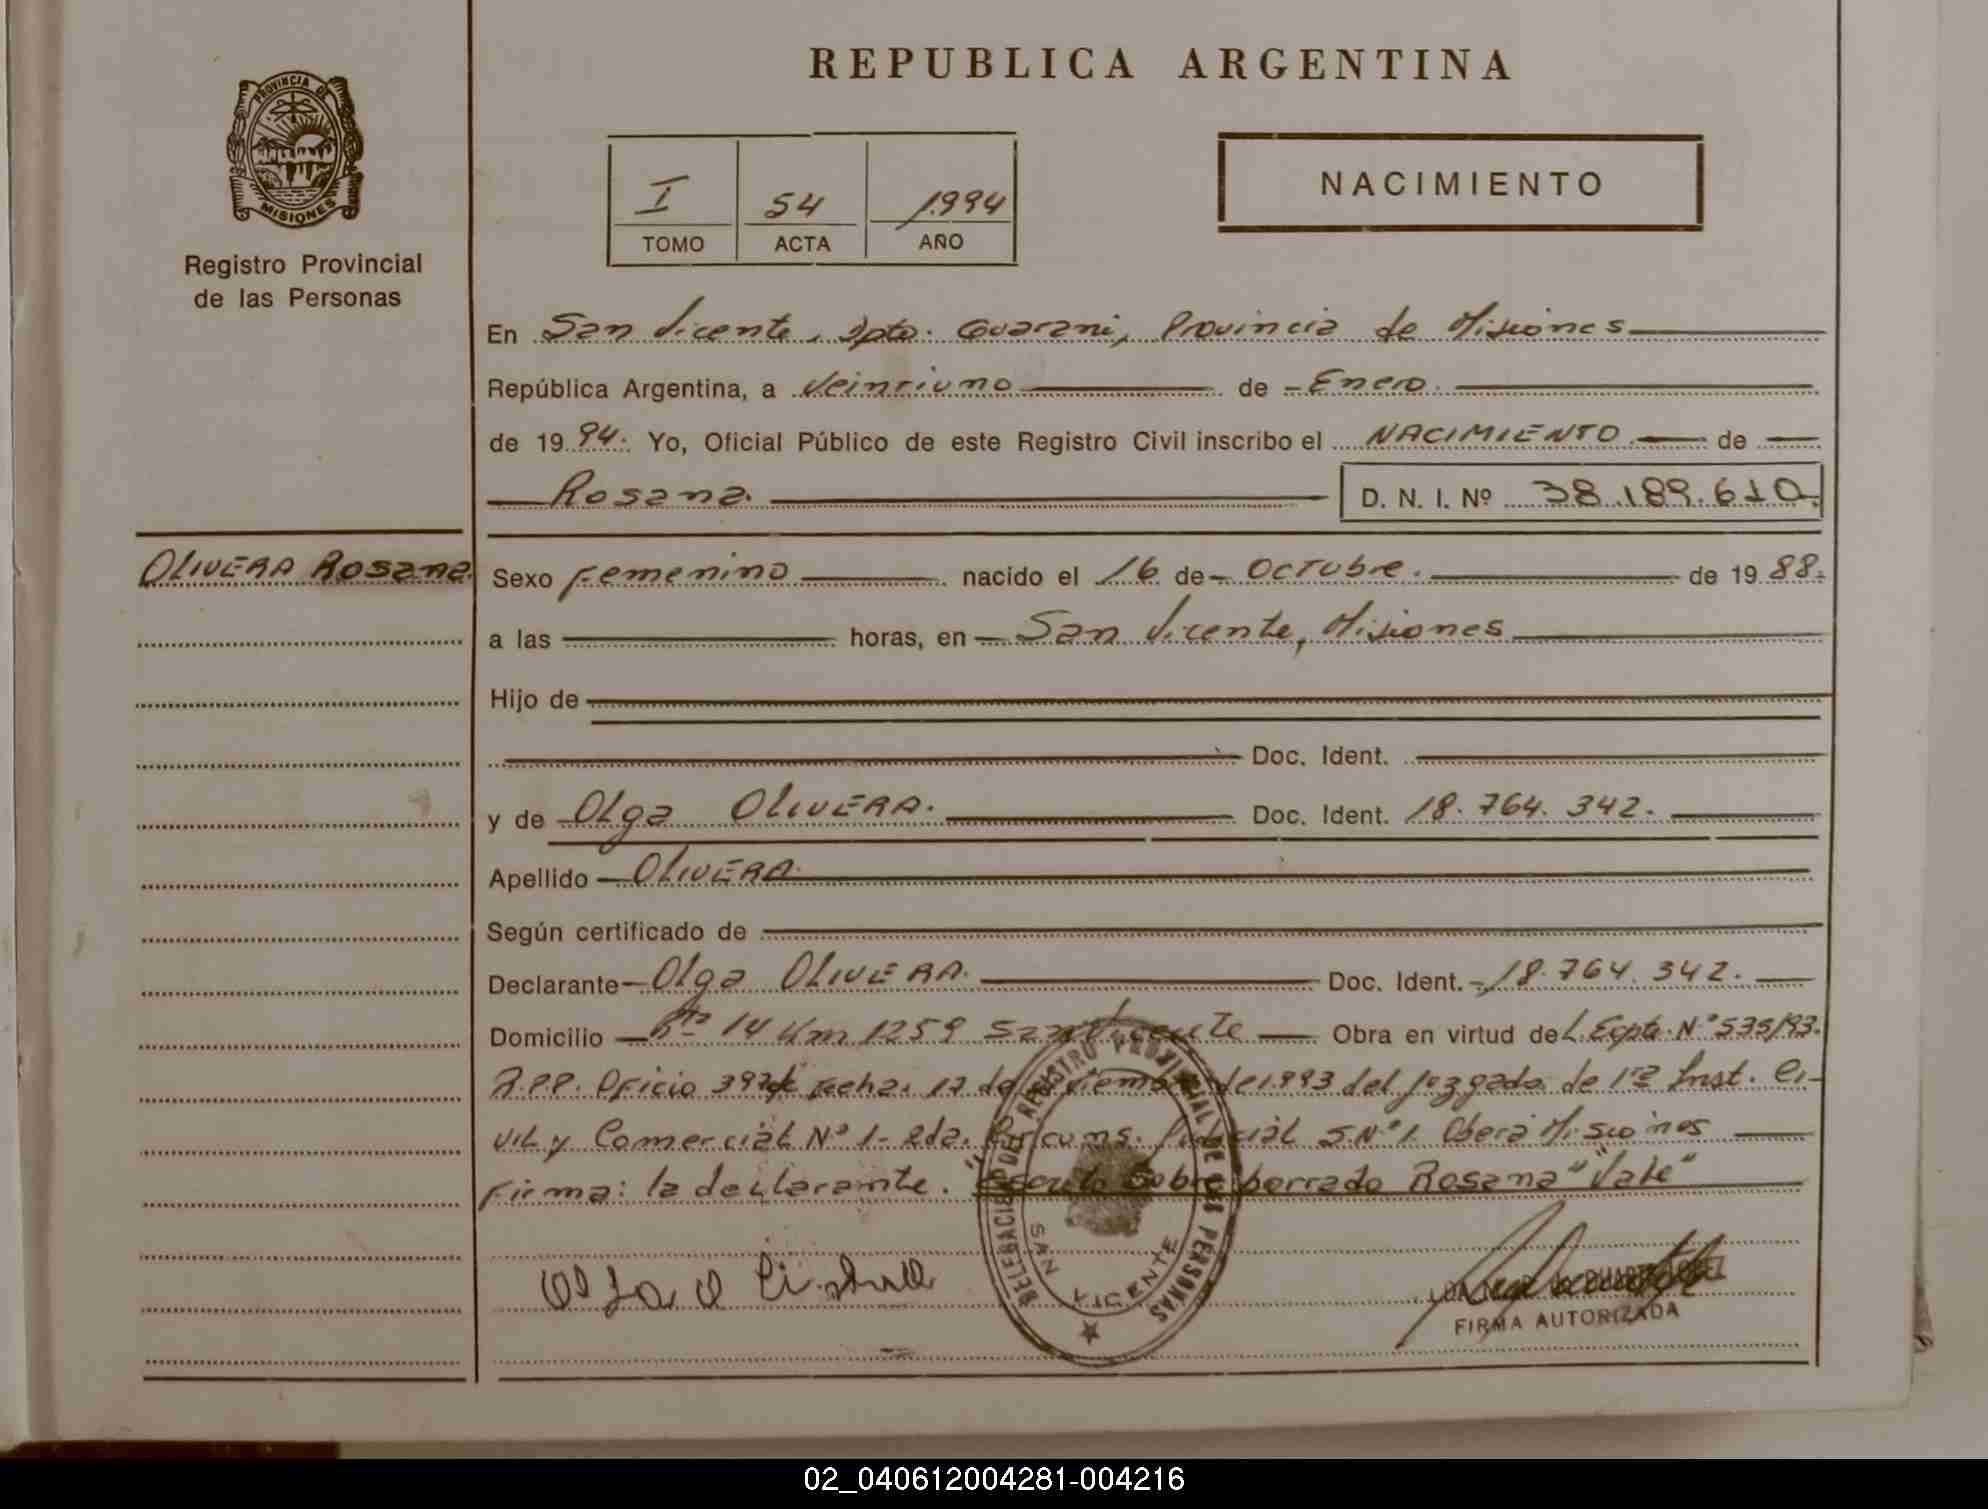 REPUBLICA ARGENTINA
PROVINCIA DE
MISIONES
Registro Provincial
de las Personas
I 54 1994
TOMO ACTA AÑO
NACIMIENTO
En San Vicente, Dpto. Guarani, Provincia de Misiones
República Argentina, a Veintiuno de Enero.
de 1994. Yo, Oficial Público de este Registro Civil inscribo el NACIMIENTO de
Rosana. D. N. I. Nº 38.189.610.
OLIVERA Rosana.
Sexo Femenino nacido el 16 de Octubre. de 1988.
a las horas, en San Vicente, Misiones
Hijo de
Doc. Ident.
y de Olga OLIVERA. Doc. Ident. 18.764.342.
Apellido OLIVERA.
Según certificado de
Declarante Olga OLIVERA. Doc. Ident. 18.764.342.
Domicilio Rta 14 Km 1259 San Vicente Obra en virtud del Expte. N° 535/93.
R.P.P. Oficio de fecha de 1.993 del Juzgado de 1ra Inst. Ci-
vil y Comercial N° 1- 2da. Circuns. Judicial S.N° 1. Oberá Misiones
Firma: la declarante. "Escrito Sobre borrado Rosana" "Vale"
DELEGACION DEL REGISTRO PROVINCIAL DE LAS PERSONAS
SAN VICENTE
FIRMA AUTORIZADA
02_040612004281-004216